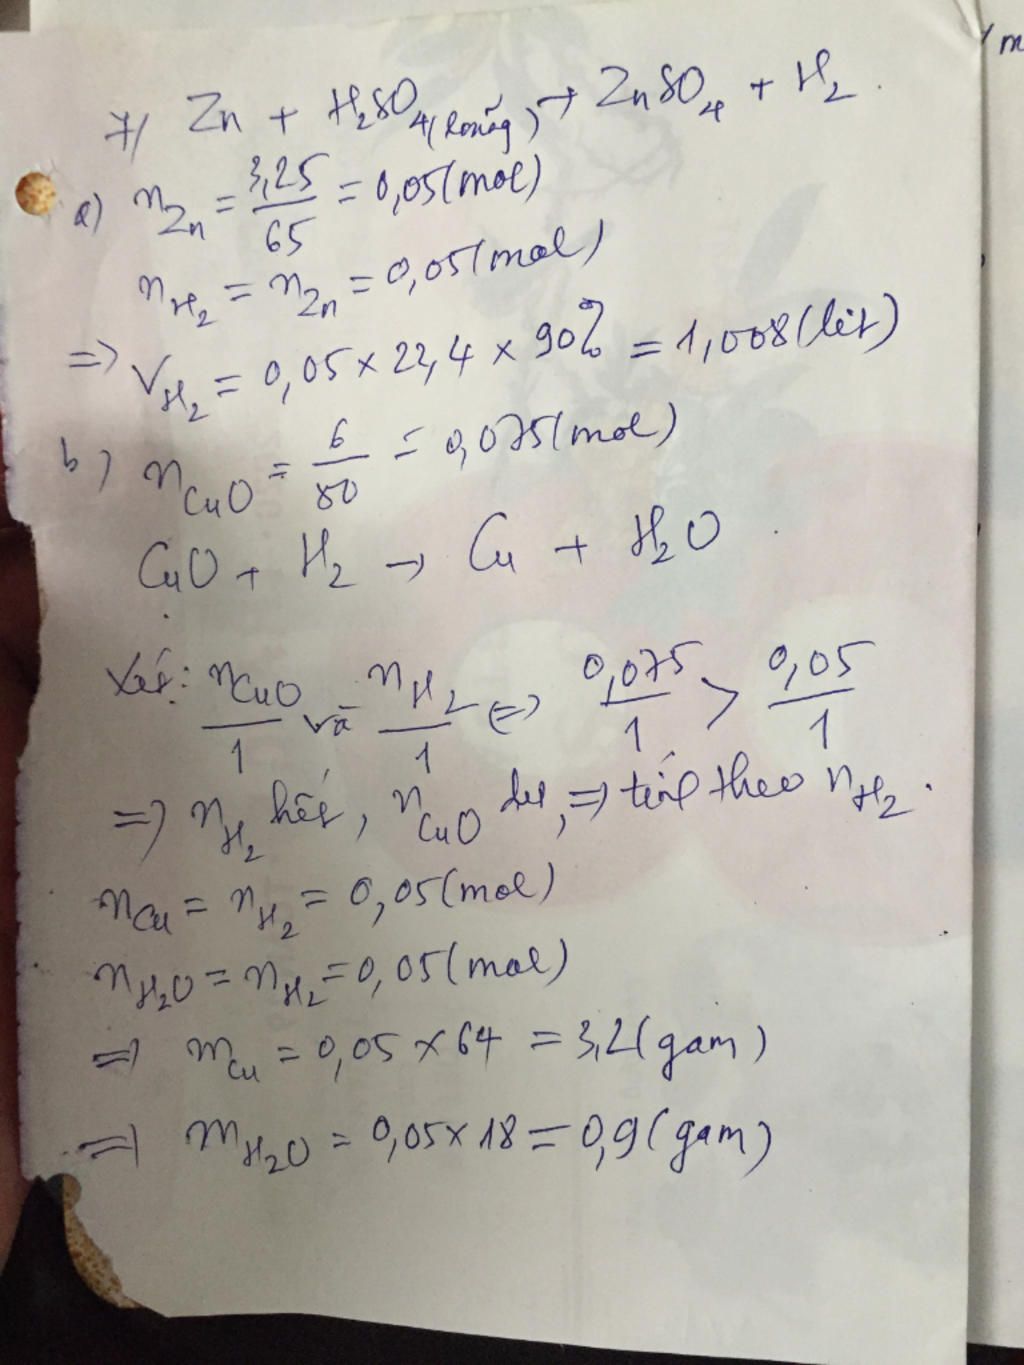 7/ Zn + H₂SO₄(loãng) → ZnSO₄ + H₂.
a) n_Zn = 3,25/65 = 0,05(mol)
n_H₂ = n_Zn = 0,05(mol)
=> V_H₂ = 0,05 x 22,4 x 90% = 1,008(lít)
b) n_CuO = 6/80 = 0,075(mol)
CuO + H₂ → Cu + H₂O
Xét: n_CuO/1 và n_H₂/1 <=> 0,075/1 > 0,05/1
=> n_H₂ hết, n_CuO dư, => tính theo n_H₂.
n_Cu = n_H₂ = 0,05(mol)
n_H₂O = n_H₂ = 0,05(mol)
=> m_Cu = 0,05 x 64 = 3,2(gam)
=> m_H₂O = 0,05 x 18 = 0,9(gam)